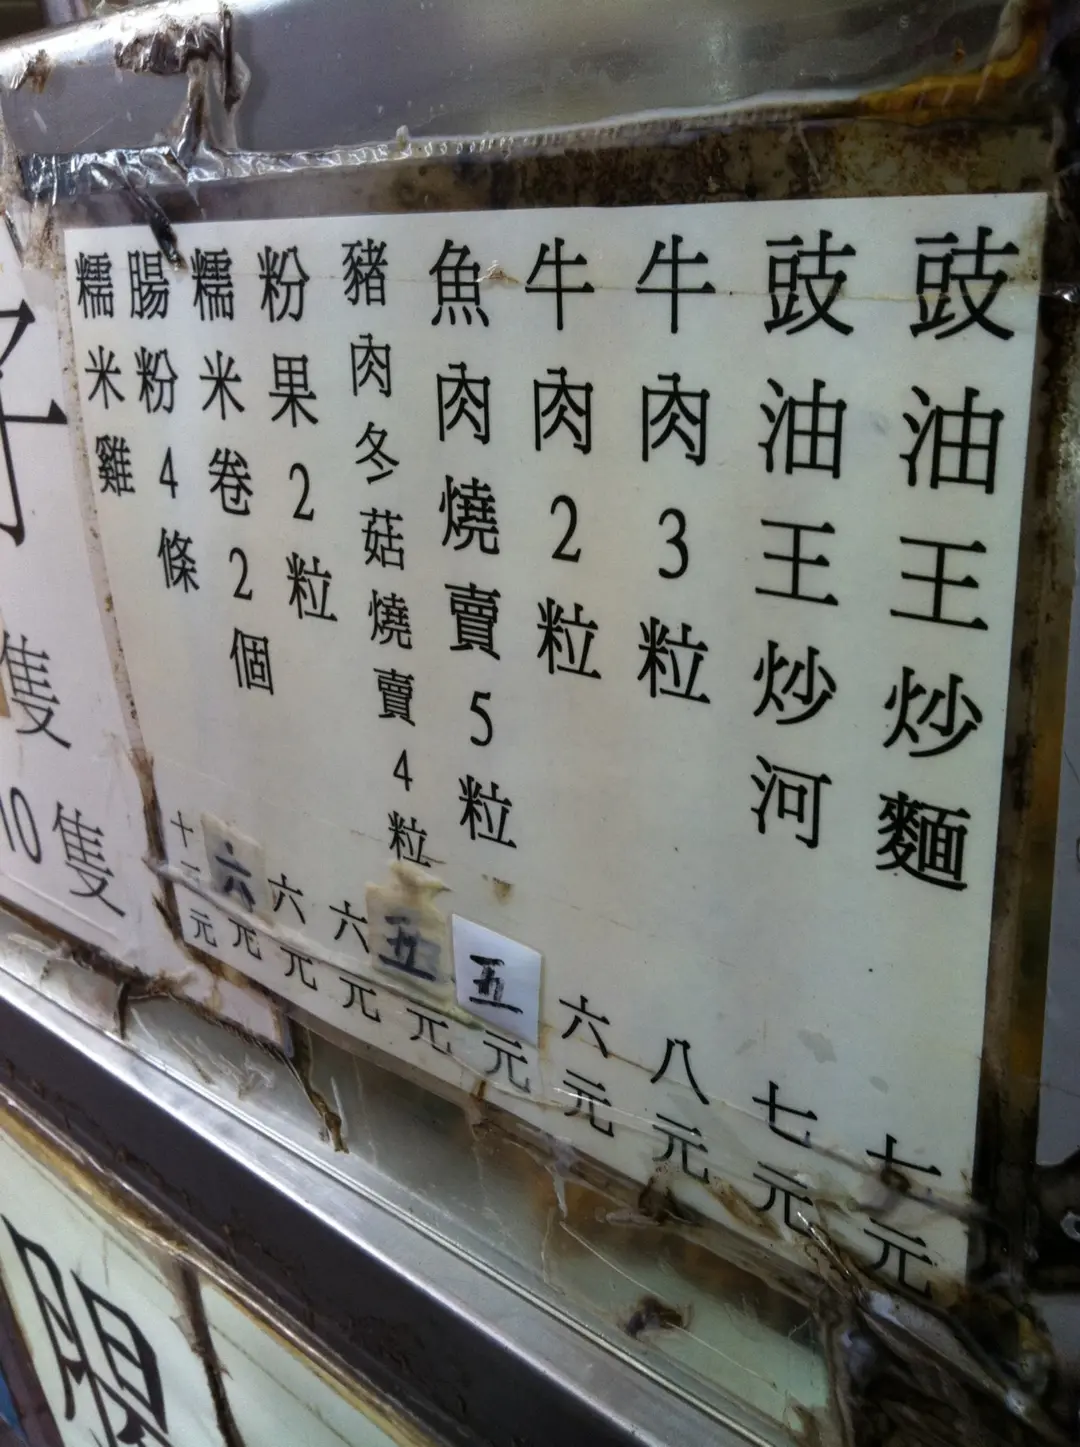 豉油王炒麵 七元
豉油王炒河 七元
牛肉3粒 八元
牛肉2粒 六元
魚肉燒賣5粒 五元
豬肉冬菇燒賣4粒 五元
粉果2粒 六元
糯米卷2個 六元
腸粉4條 六元
糯米雞 十一元
隻
10隻
腸